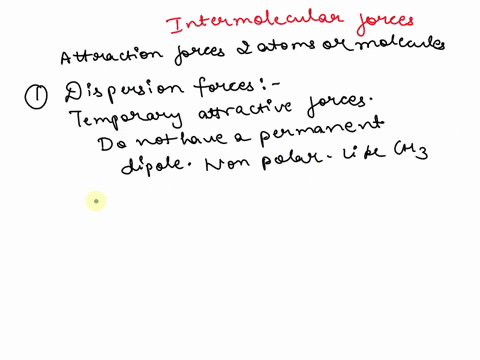 Intermolecular forces
Attraction forces 2 atoms or molecules
① Dispersion forces:-
Temporary attractive forces.
Do not have a permanent
dipole. Non polar. Like CH3